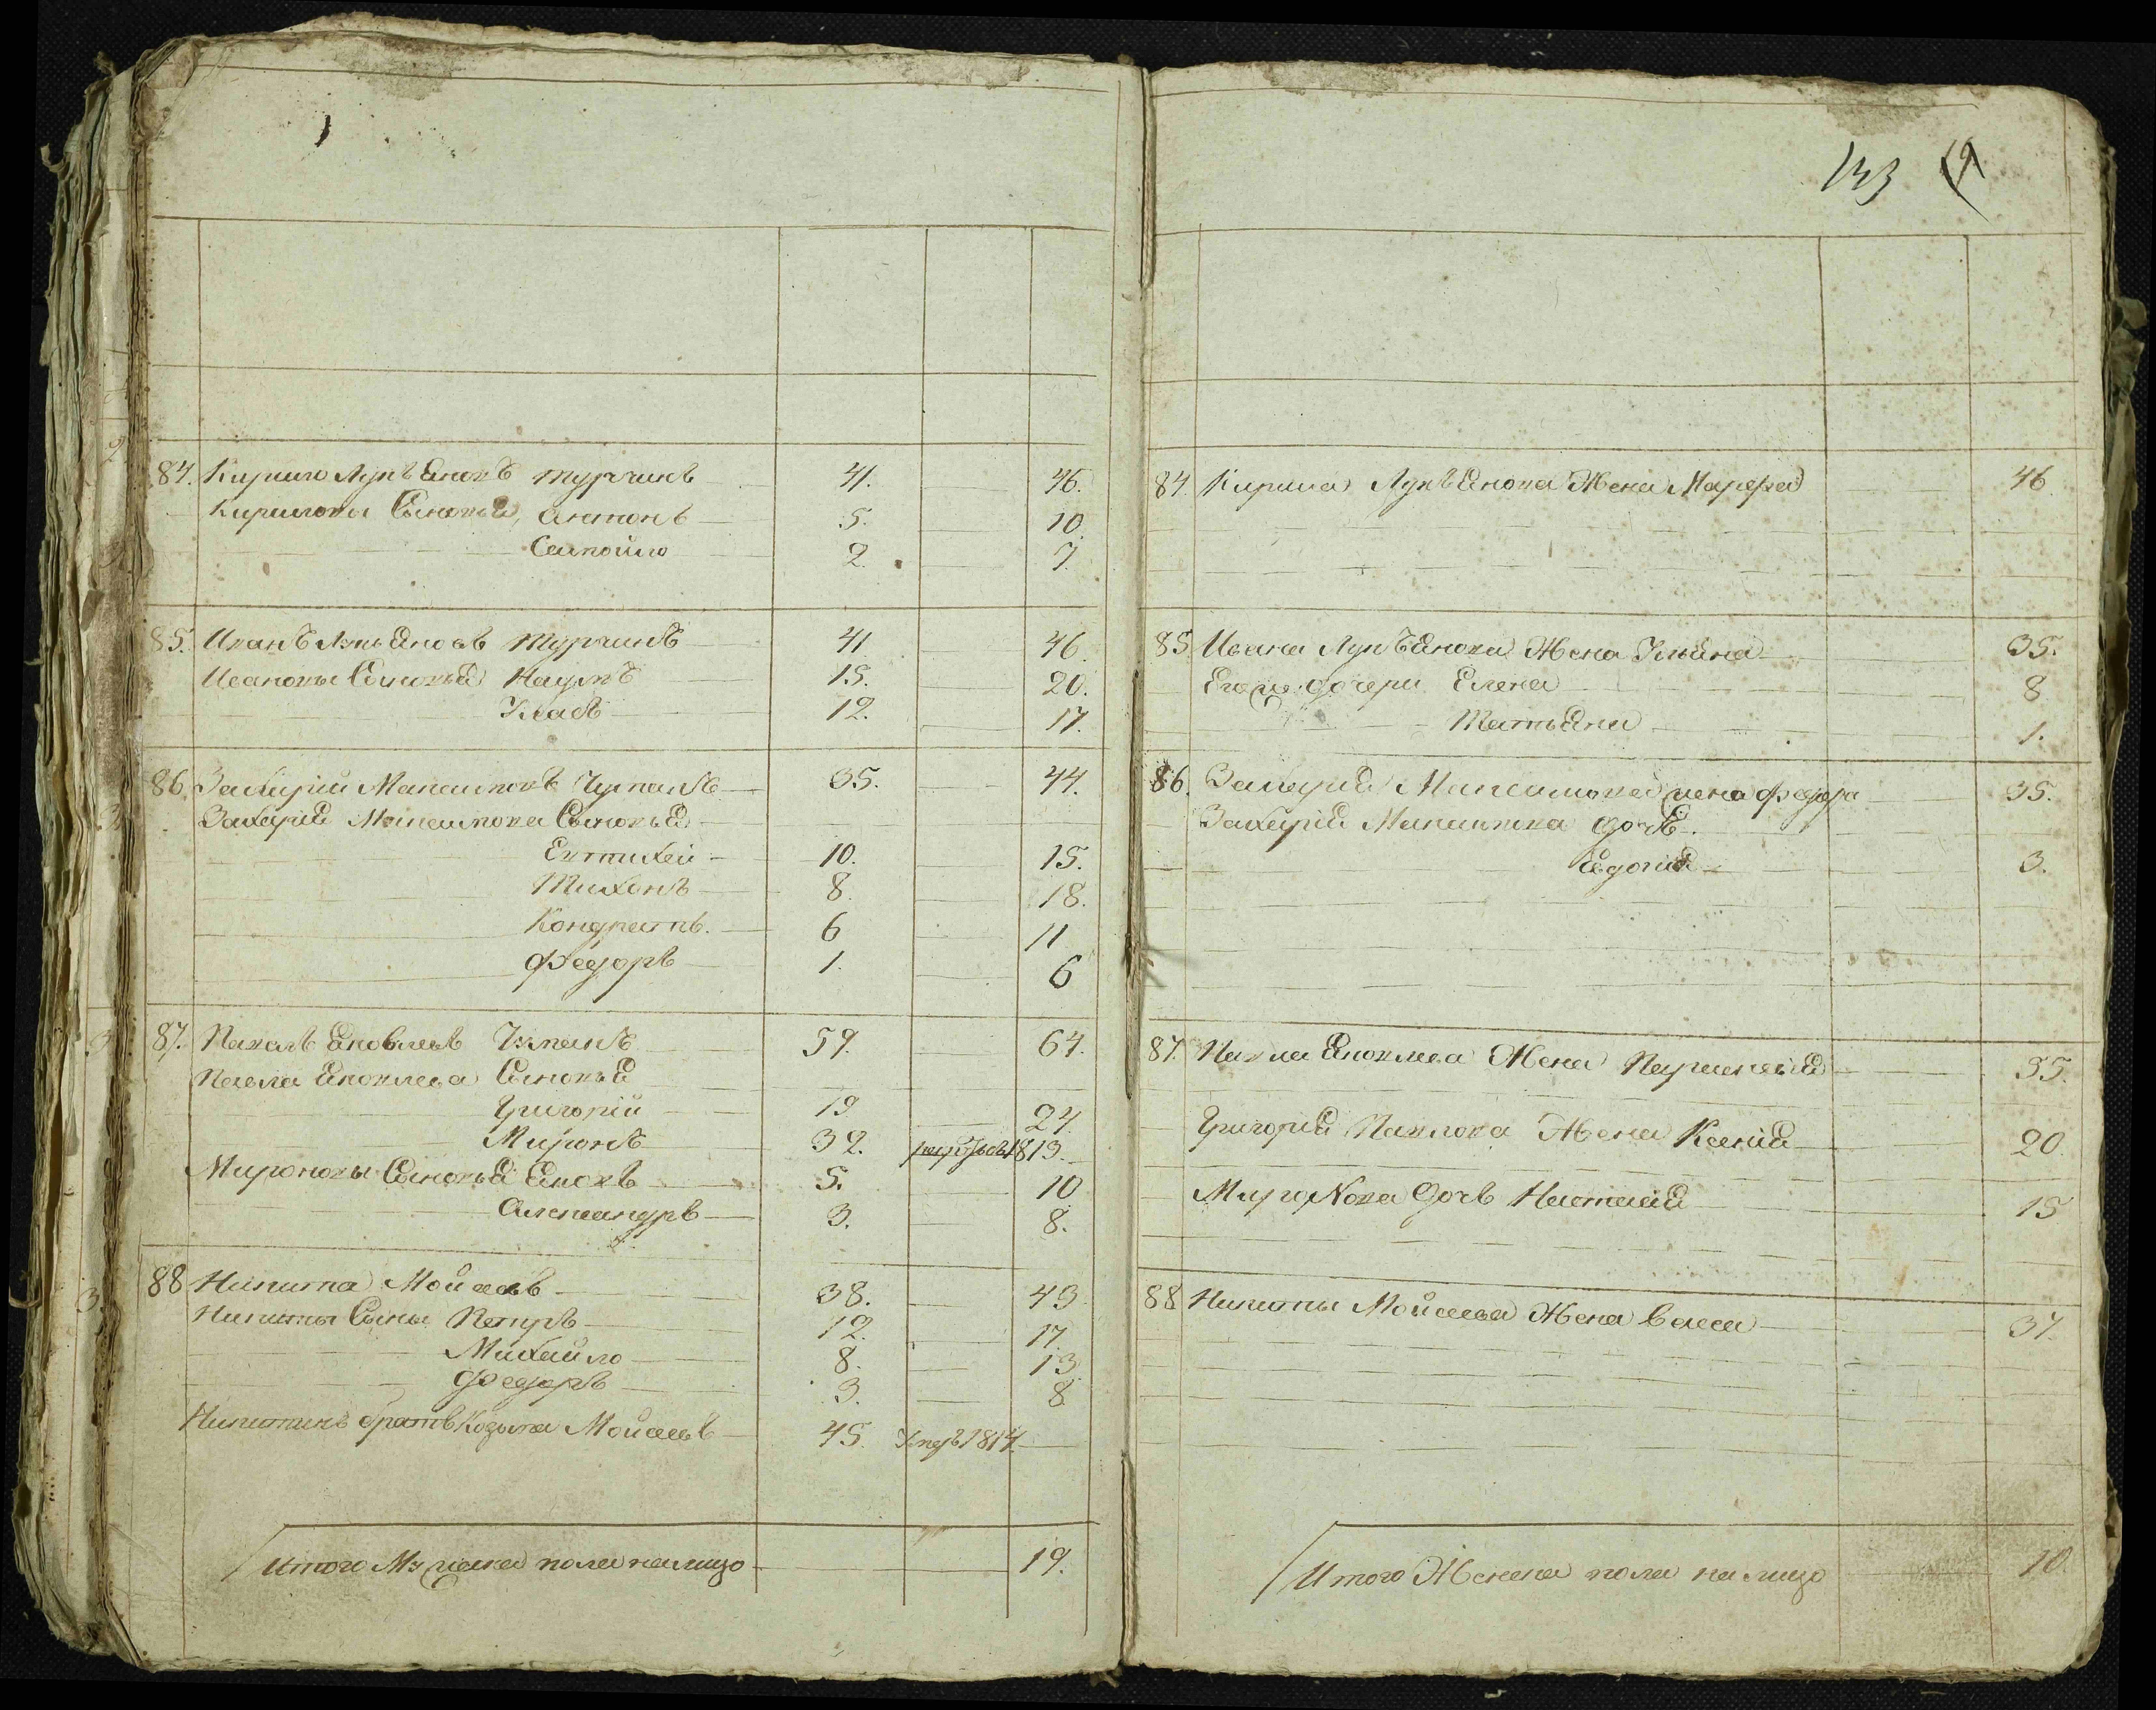 133
84. Кирило Лукъяновъ Турчинъ 41. 46.
Кириловы Сыновья, антонъ 5. 10.
Самойло 2. 7.
85. Иванъ Лукъяновъ Турчинъ 41 46.
Ивановы Сыновья Наумъ 15. 20.
Власъ 12. 17.
86. Захарій Максимовъ 35. 44.
Захарія Максимова Сыновья
Евтихей 10. 15.
Тихонъ 8. 18.
Кондратъ. 6 11
Федоръ 1. 6
87. Павелъ Яковлевъ 59. 64.
Павла Яковлева Сыновья
Григорій 19 24.
Миронъ 32. 1813.
Мироновы Сыновья Яковъ 5. 10
Александръ 3. 8.
88 Никита Мойсеевъ 38. 43.
Никиты Сыны Петръ 12. 17.
Михайло 8. 13
Федоръ 3. 8
Никитинъ братъ Козьма Мойсеевъ 45. Умеръ 1814.
Итого Мужеска пола налицо 19.
84. Кирила Лукъянова Жена Марфа 46.
85 Ивана Лукъянова Жена Ульяна 35.
Егоже дочери Елена 8
Татьяна 1.
86. Захарія Максимова жена Федора 35.
Захарія Максимова дочь.
Евдокія 3.
87. Павла Яковлева Жена Парасковія 55.
Григорія Павлова Жена Ксенія 20.
Миронова Дочь Наталія 15
88 Никиты Мойсеева Жена Васса 37.
Итого Женска пола на лицо 10.